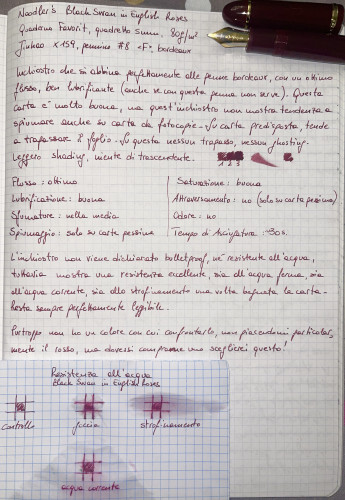 Noodler's Black Swan in English Roses
Quaderno Favorit, quadretto 5mm, 80g/m²
Jinhao x159, pennino #8 <F>, bordeaux
Inchiostro che si abbina perfettamente alle penne bordeaux, con un ottimo
flusso, ben lubrificante (anche se con questa penna non serve). Questa
carta è molto buona, ma quest'inchiostro non mostra tendenza a
spiumare anche su carta da fotocopie. Su carta predisposta, tende
a trapassare il foglio. Su questa nessun trapasso, nessun ghosting.
Leggero shading, niente di trascendentale.
1 2 3
Flusso: ottimo
Lubrificazione: buona
Sfumature: nella media
Spiumaggio: solo su carte pessime
Saturazione: buona
Attraversamento: no (solo su carta pessima)
Odore: no
Tempo di asciugatura: ~30s.
L'inchiostro non viene dichiarato bulletproof, né resistente all'acqua,
tuttavia mostra una resistenza eccellente, sia all'acqua ferma, sia
all'acqua corrente, sia allo strofinamento una volta bagnata la carta.
Resta sempre perfettamente leggibile.
Purtroppo non ho un colore con cui confrontarlo, non piacendomi particolar,
mente il rosso, ma dovessi comprarne uno sceglierei questo!
Resistenza all'acqua
Black Swan in English Roses
controllo
goccia
strofinamento
acqua corrente